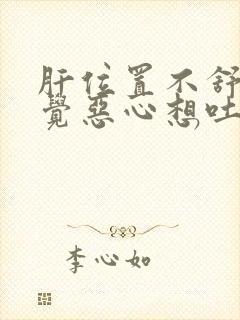 肝位置不舒
觉恶心想吐
李心如